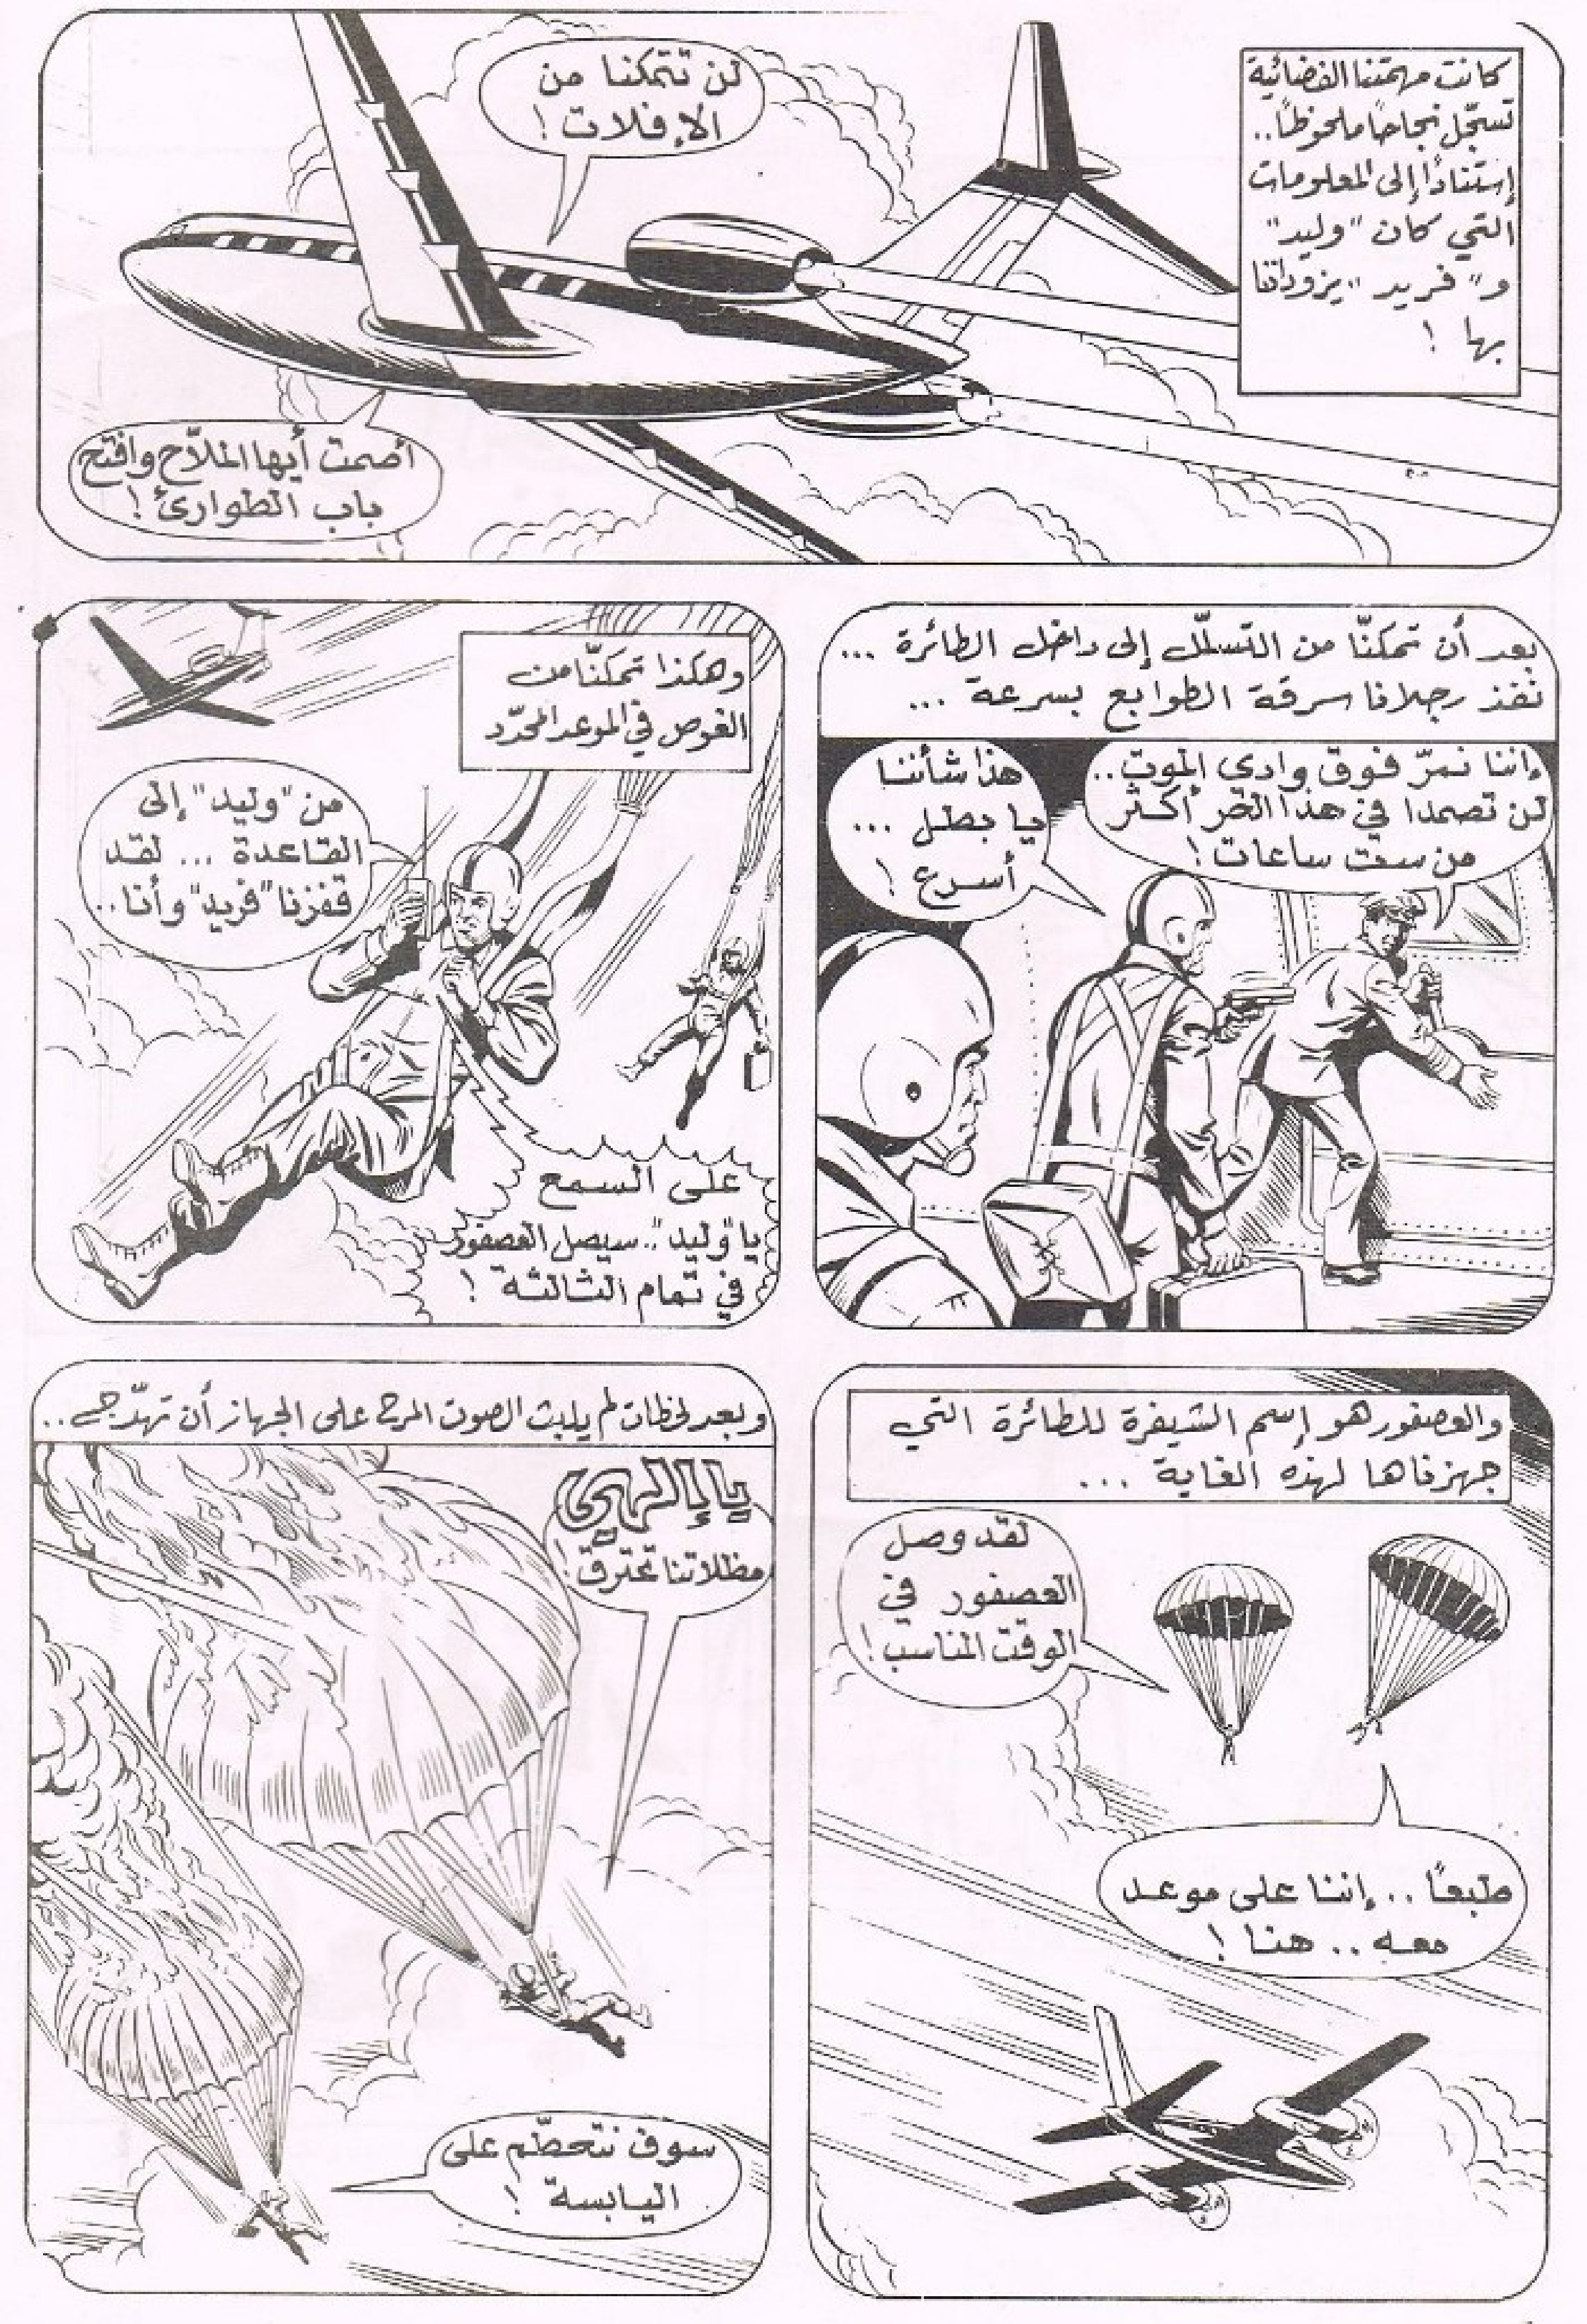 كانت مهمتنا الفضائية
تسجّل نجاحًا ملحوظًا..
إستنادًا إلى المعلومات
التي كان "وليد"
و"فريد" يزوداننا
بها !
لن تتمكنا من
الإفلات !
أصمت أيها الملاّح وافتح
باب الطوارئ !
بعد أن تمكنّا من التسلّل إلى داخل الطائرة ...
نفذ رجلانا سرقة الطوابع بسرعة ...
إننا نمرّ فوق وادي الموت..
لن تصمدا في هذا الحر أكثر
من ست ساعات !
هذا شأننا
يا بطل ...
أسرع !
وهكذا تمكنّا من
الغوص في الموعد المحدّد
من "وليد" إلى
القاعدة ... لقد
قفزنا "فريد" وأنا..
على السمع
يا "وليد".. سيصل العصفور
في تمام الثالثة !
والعصفور هو إسم الشيفرة للطائرة التي
جهزناها لهذه الغاية ...
لقد وصل
العصفور في
الوقت المناسب !
طبعًا .. إننا على موعد
معه .. هنا !
وبعد لحظات لم يلبث الصوت المرح على الجهاز أن تهدّج..
يا إلهي
مظلاتنا تحترق !
سوف نتحطّم على
اليابسة !